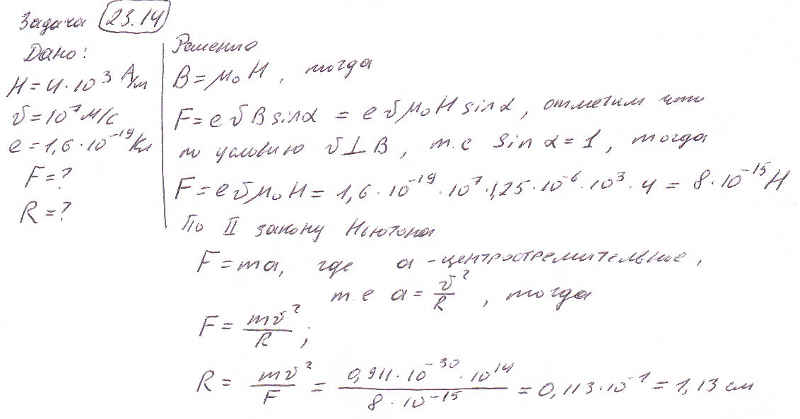 Задача 23.14
Дано:
H = 4·10³ А/м
v = 10⁷ м/с
e = 1,6·10⁻¹⁹ Кл
F = ?
R = ?
Решение
B = μ₀H, тогда
F = e v B sinα = e v μ₀ H sinα, отметим что
по условию v ⊥ B, т.е sinα = 1, тогда
F = e v μ₀ H = 1,6·10⁻¹⁹·10⁷·1,25·10⁻⁶·10³·4 = 8·10⁻¹⁵ Н
По II закону Ньютона
F = ma, где a - центростремительное,
т.е a = v²/R, тогда
F = mv²/R;
R = mv²/F = 0,911·10⁻³⁰·10¹⁴/8·10⁻¹⁵ = 0,113·10⁻¹ = 1,13 см